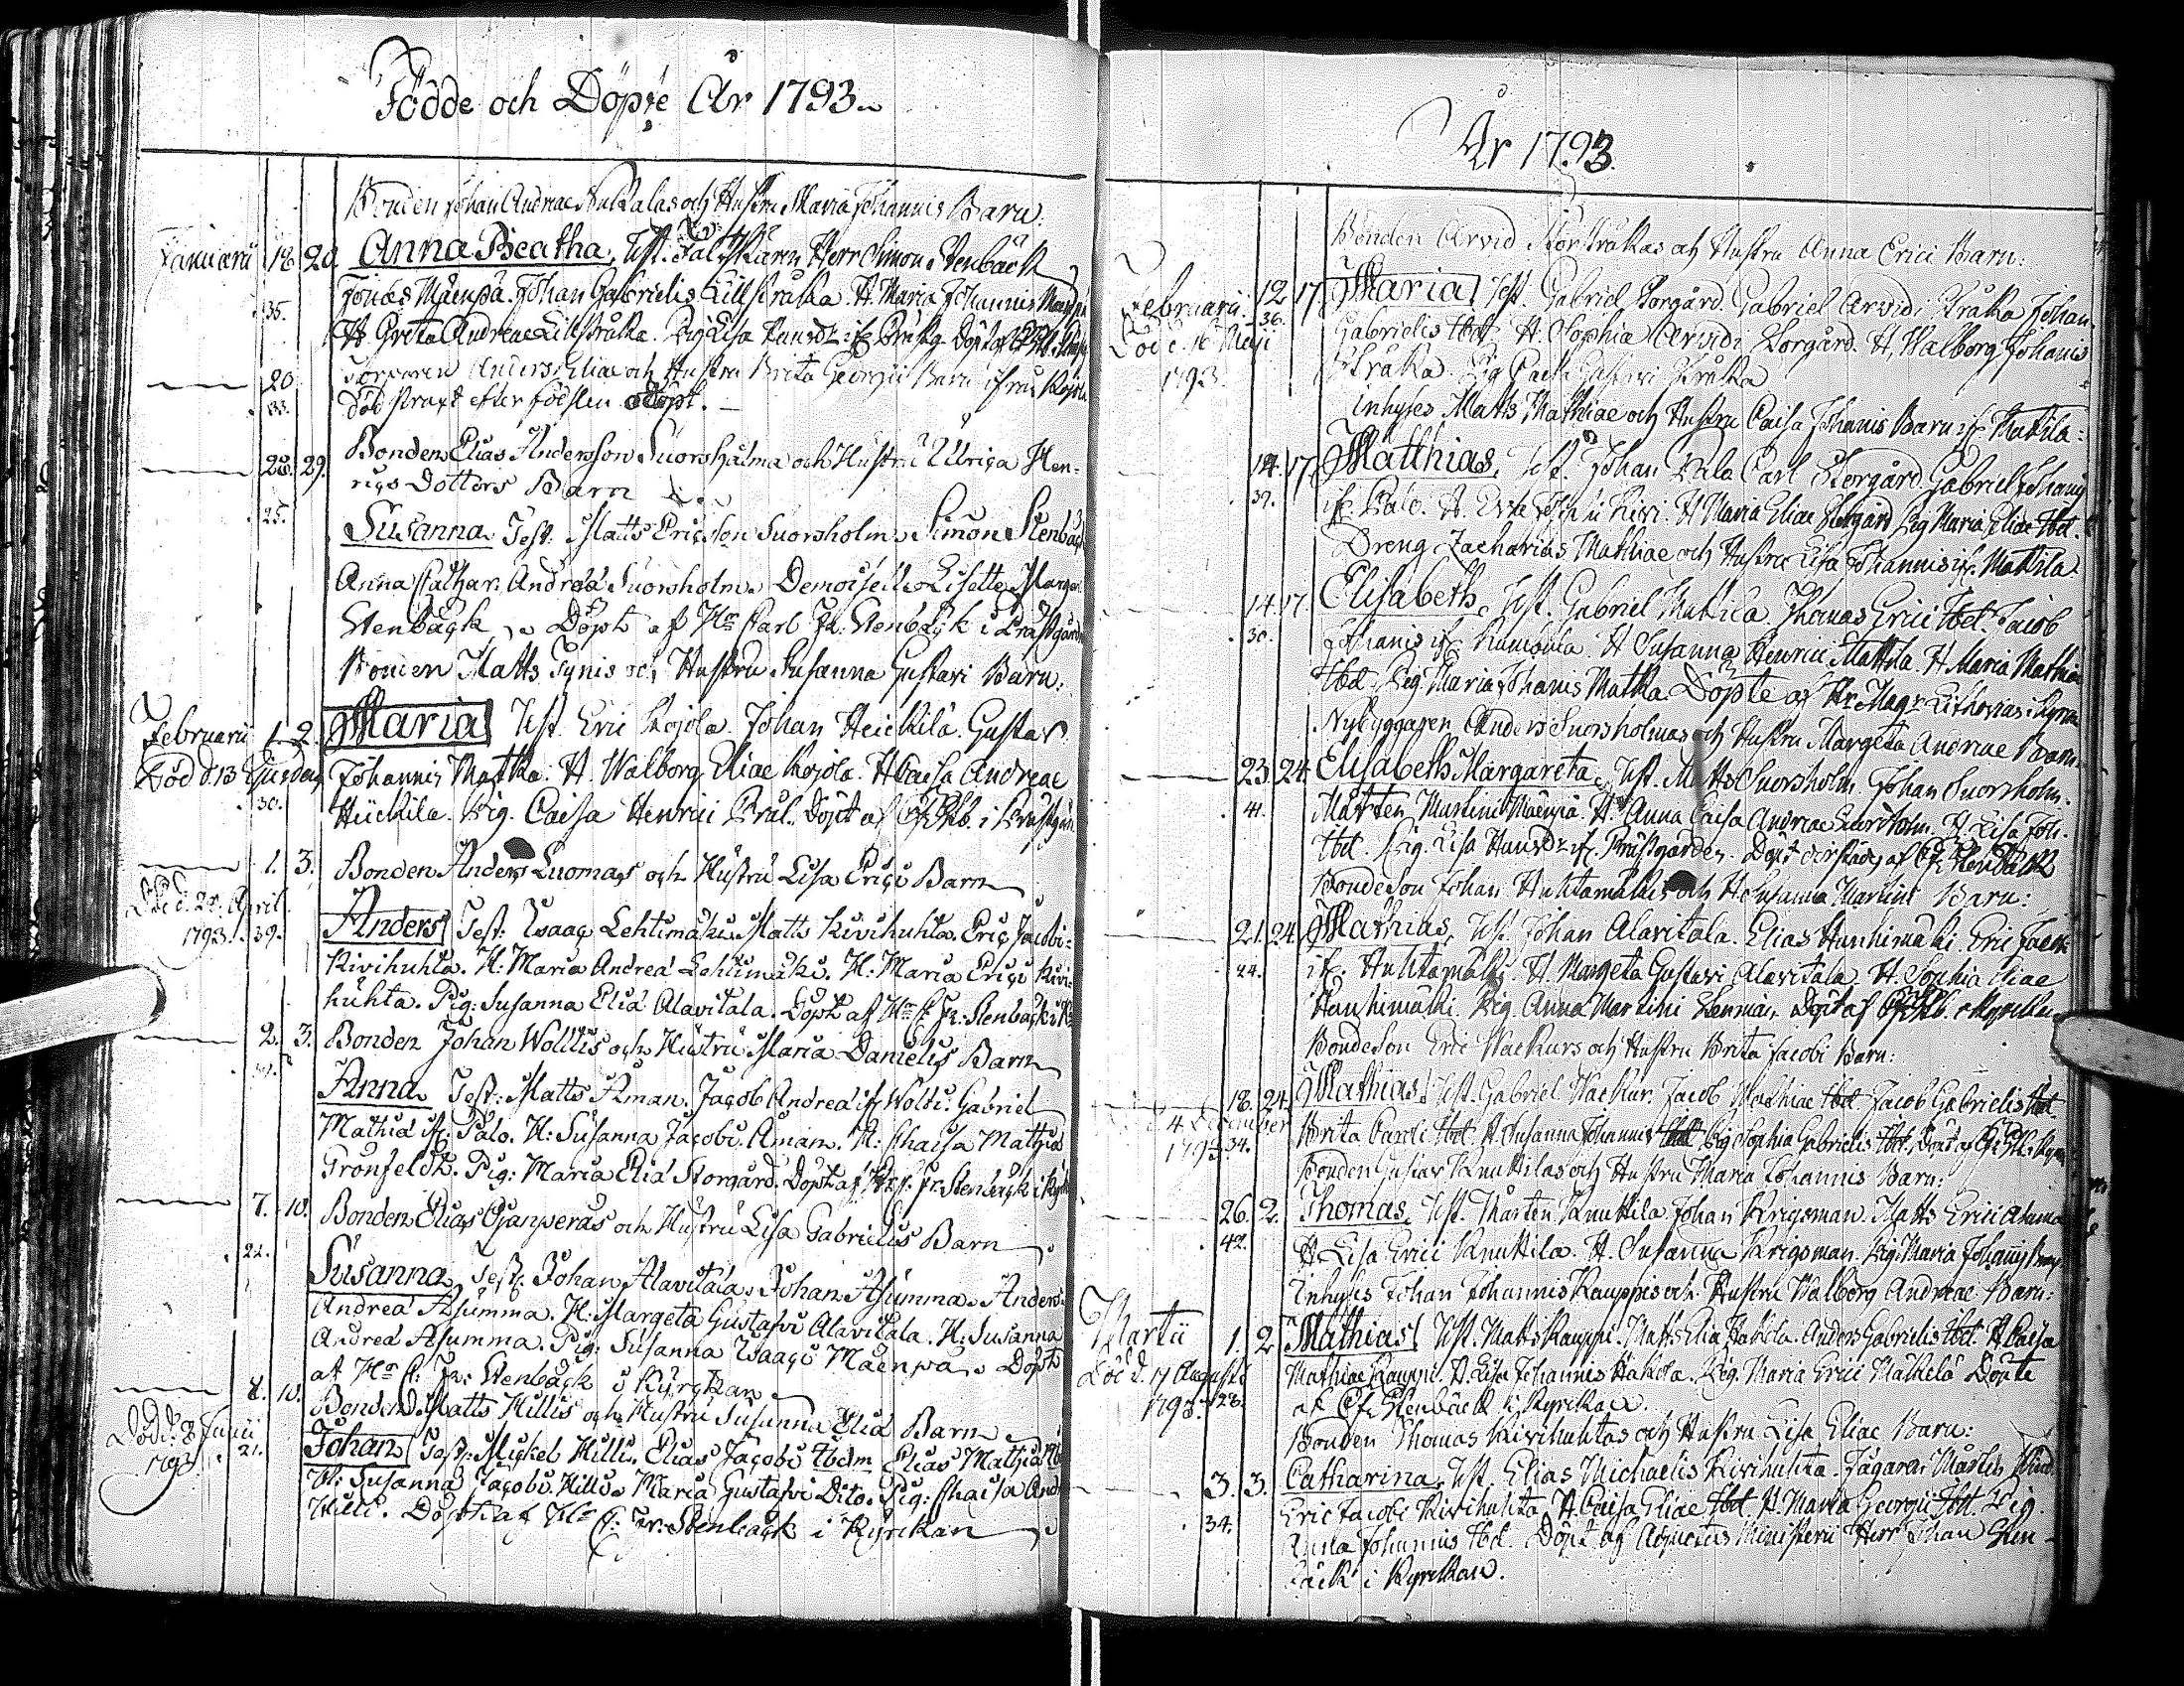 Födde och Döpte År 1793.
Bonden Johan Andreae Knuuttilas och Hustru Maria Johannis Barn:
Januarii 18. 20. Anna Beatha, Test. Fältskären Herr Simon Stenbäck
35. Jonas Mäenpä. Johan Gabrielis Lillstråka. H. Maria Johannis Mäenpä
H. Greta Andreae Lillstråka. Pig. Lisa
20. Anders Eliae och Hustru Brita Georgii Barn ifrån Kojola
33. död strax efter födslen odöpt.
28. 29. Bonden Elias Andersson Suorsholma och Hustru Ulrica Hen-
rics Dotters Barn
25. Susanna. Test: Matts Ericsson Suorsholm. Simon Stenbäck
Anna Cathar. Andreä Suorsholm. Demoiselle Lisette Margar.
Stenbäck. Döpt af Hr Carl Fr: Stenbäck i Prästgården
Bonden Matts Tynis och Hustru Susanna Gustavi Barn:
Februarii 1. 2. Maria Test. Eric Kojola. Johan Heickilä. Gustav
Död d. 13 Ejusdem Johannis Matka. H. Walborg Eliae Kojola. H Caisa Andreae
30. Heickila. Pig. Caisa Henrici Döpt af CFStb. i Prästgån
1. 3. Bonden Anders Luomas och Hustru Lisa Erici Barn
Död d. 28. April Anders Test: Isaac Lehtimäki. Matts Kivihuhta. Eric Jacobi
1793. 39. Kivihuhta. H: Maria Andreä Lehtimäki. H: Maria Erici Kivi-
huhta. Pig: Susanna Eliä Alavitala. Döpt af Hr C. Fr: Stenbäck
2. 3. Bonden Johan Woltis och Hustru Maria Danielis Barn
Anna. Test: Matts Åman. Jacob Andreä if. Wolti. Gabriel
Mathiä if. Palo. H: Susanna Jacobi Åman. H: Chaisa Mathiä
Grönfeldt. Pig: Maria Eliä Storgård. Döpt af Hr C. Fr. Stenbäck i Kyrk
7. 10. Bonden Elias Ojanperäs och Hustru Lisa Gabrielis Barn
22. Susanna. Test. Johan Alavitala. Johan Asumma. Anders
Andreä Asumma. H: Margeta Gustafvi Alavitala. H: Susanna
Andreä Asumma. Pig: Susanna Isaaci Mäenpä. Döpt
af Hr C: Fr: Stenbäck i Kyrckan
8. 10. Bonden Matts Hillis och Hustru Susanna Eliä Barn
Död d. 8 Junii 21. Johan Test: Mickel Hilli. Elias Jacobi Ibdm Elias Mathiä
1793 H: Susanna Jacobi Hilli. Maria Gustafvi Dito. Pig: Chaisa
Hilli. Döpt af Hr C: Fr: Stenbäck i Kyrckan
År 1793.
Bonden Arvid Storstråkas och Hustru Anna Erici Barn:
Februarii 12 17. Maria Test. Gabriel Storgård. Gabriel Arvidi Stråka Johan
36. Gabrielis Ibd. H. Sophia Arvidi Storgård. H. Walborg Johannis
Död d. 16 Maji Stråka. Pig Gustavi Stråka
1793. Inhyses Matts Mathiae och Hustru Caisa Johannis Barn if. Mattila:
14. 17. Matthias, Test. Johan Palo Carl Storgård. Gabriel Johannis
37. if. Palo. H. H Maria Eliae Storgård Pig Maria Eliae Ibd.
Dreng Zacharias Mathiae och Hustru Lisa Johannis if. Mattila.
14. 17. Elisabeth, Test. Gabriel Mattila. Thomas Erici Ibd. Jacob
30. Johannis if. H Susanna Henrici Mattila. H. Maria Mathiae
Ibd. Pig Maria Johannis Matka Döpte af Hr. Mag: Lithovius i Kyrck
Nybyggaren Anders Suorsholmas och Hustru Margeta Andreae Barn.
23. 24. Elisabeth Margareta, Test. Matts Suorsholm. Johan Suorsholm.
41. Mårten Martini Mäenpä. H. Anna Caisa Andreae Suorsholm. H. Lisa Joh.
Ibd. Pig. Lisa Hansdr if. Prästgården. Döpt dörstädes af CF. Stenbäck
Bondeson Johan Huhtamäkis och H. Susanna Martini Barn:
21. 24. Mathias, Test. Johan Alavitala. Elias Hanhimäki. Eric Jacobi
24. if. Huhtamäki. H. Margeta Gustavi Alavitala. H. Sophia Eliae
Hanhimäki. Pig. Anna Martini Döpt af CFStb.
Bondeson Eric Wackurs och Hustru Brita Jacobi Barn:
18. 24. Mathias. Test. Gabriel Wackur. Jacob Mathiae Ibd. Jacob Gabrielis Ibd.
d. 4. December 34. Brita Caroli Ibd. H. Susanna Johannis Ibd. Pig Sophia Gabrielis Ibd. Döpt af
1793. Bonden Gustav Knuttilas och Hustru Maria Johannis Barn:
26. 2. Thomas, Test. Mårten Knuttila. Johan Krigsman. Matts Erici
42. H Lisa Erici Knuttila. H. Susanna Krigsman. Pig. Maria Johannis
Inhyses Johan Johannis Kauppis och Hustru Walborg Andreae Barn:
Martii 1. 2 Mathias Test. Matts Kauppi. Matts Elia Hakola. Anders Gabrielis Ibd. H Caisa
Död d. 17 Augusti Mathiae Kauppi. H. Lisa Johannis Hakola. Pig. Maria Erici Mäkelä Döpte
1793. 28. af C. Fr. Stenbäck i Kyrckan.
Bonden Thomas Kivihuhtas och Hustru Lisa Eliae Barn:
3. 3. Catharina, Test. Elias Michaelis Kivihuhta. Jägaren Mårten
34. Eric Jacobi Kivihuhta H Caisa Eliae Ibd. H. Maria Georgii Ibd. Pig
Anna Johannis Ibd. Döpt af Adjunctus Ministerii Herr Johan Sten-
bäck i Kyrckan.